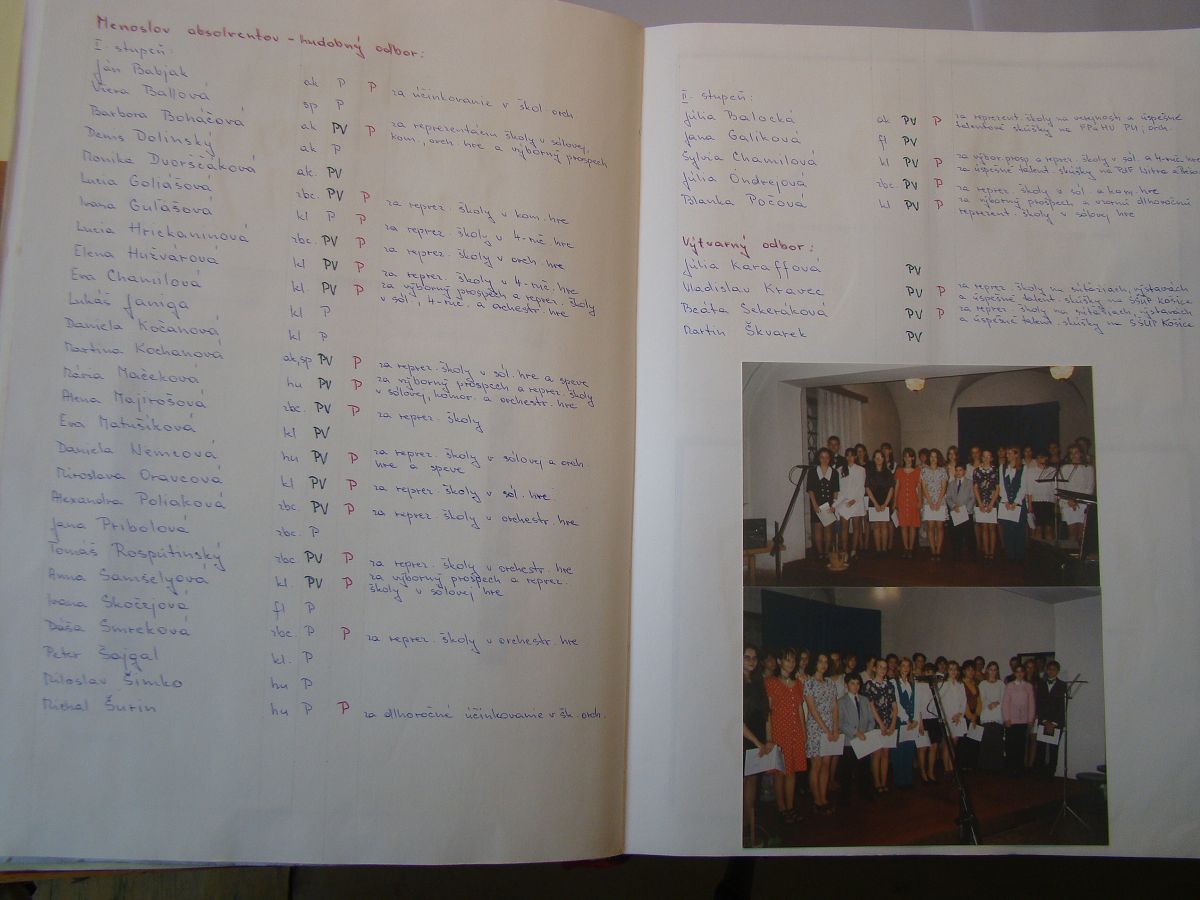 Menoslov absolventov – hudobný odbor:
I. stupeň:
Ján Babjak ak P P za účinkovanie v škol. orch
Viera Ballová sp P
Barbora Boháčová ak PV P za reprezentáciu školy v sólovej, kom., orch. hre a výborný prospech
Denis Dolinský ak P
Monika Dvorščáková ak. PV
Lucia Goliášová zbc. PV P za reprez. školy v kom. hre
Ivana Gulášová kl P P za reprez. školy v 4-ruč. hre
Lucia Hrickaninová zbc. PV P za reprez. školy v orch. hre
Elena Hužvárová kl PV P za reprez. školy v 4-ruč. hre
Eva Chamilová kl. PV P za výborný prospech a reprez. školy v sól., 4-ruč. a orchestr. hre
Lukáš Janiga kl P
Daniela Kočanová kl P
Martina Kochanová ak,sp PV P za reprez. školy v sól. hre a speve
Mária Mačeková hu PV P za výborný prospech a reprez. školy v sólovej, komor. a orchestr. hre
Alena Majirošová zbc. PV P za reprez. školy
Eva Matušíková kl PV
Daniela Nemcová hu PV P za reprez. školy v sólovej a orch. hre a speve
Miroslava Oravcová kl PV P za reprez. školy v sól. hre
Alexandra Poliaková zbc. PV P za reprez. školy v orchestr. hre
Jana Pribolová zbc. P
Tomáš Rosputinský zbc PV P za reprez. školy v orchestr. hre
Anna Samšelyová kl. PV P za výborný prospech a reprez. školy v sólovej hre
Ivana Skočejová fl P
Dáša Smreková zbc. P P za reprez. školy v orchestr. hre
Peter Šajgal kl. P
Miloslav Šimko hu P
Michal Šurin hu P P za dlhoročné účinkovanie v šk. orch.
II. stupeň:
Júlia Balocká ak PV P za reprezent. školy na verejnosti a úspešné talentové skúšky na FPaHV PU, orch.
Jana Galiková fl PV
Sylvia Chamilová kl PV P za výbor. prosp. a reprez. školy v sól. a 4-ruč. hre za úspešné talent. skúšky na PdF Nitra a
Júlia Ondrejová zbc. PV P za reprez. školy v sól. a kom. hre
Blanka Počová kl PV P za výborný prospech a vzornú dlhoročnú reprezent. školy v sólovej hre
Výtvarný odbor:
Júlia Karaffová PV
Vladislav Kravec PV P za reprez. školy na súťažiach, výstavách a úspešné talent. skúšky na SŠÚP Košice
Beáta Sekeráková PV P za reprez. školy na súťažiach, výstavách a úspešné talent. skúšky na SŠÚP Košice
Martin Škvarek PV